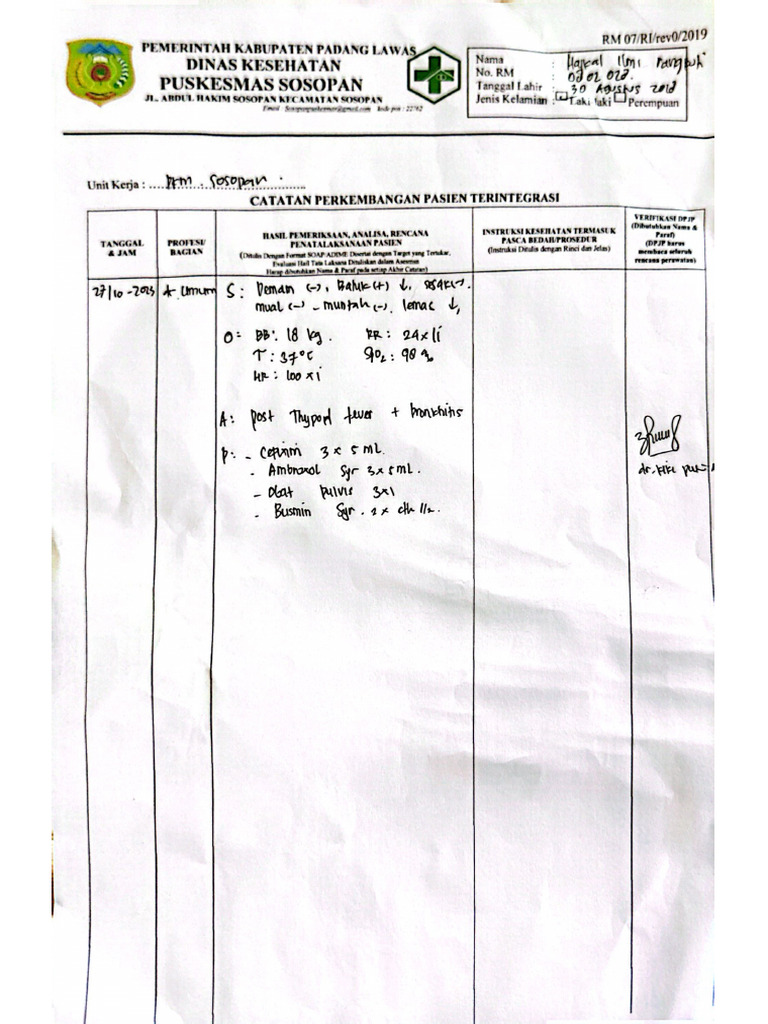 RM 07/RI/rev0/2019
PEMERINTAH KABUPATEN PADANG LAWAS
DINAS KESEHATAN
PUSKESMAS SOSOPAN
JL. ABDUL HAKIM SOSOPAN KECAMATAN SOSOPAN
Email : kode pos : 22762
Nama : Ilmi
No. RM
Tanggal Lahir : 30 Agustus 2018
Jenis Kelamian : Laki laki Perempuan
Unit Kerja : PKM. Sosopan
CATATAN PERKEMBANGAN PASIEN TERINTEGRASI
TANGGAL & JAM
PROFESI/ BAGIAN
HASIL PEMERIKSAAN, ANALISA, RENCANA
PENATALAKSANAAN PASIEN
(Ditulis Dengan Format SOAP/ADIME Disertai dengan Target yang Terukur,
Evaluasi Hasil Tata Laksana Dituliskan dalam Asesmen
Harap dibutuhkan Nama & Paraf pada setiap Akhir Catatan)
INSTRUKSI KESEHATAN TERMASUK
PASCA BEDAH/PROSEDUR
(Instruksi Ditulis dengan Rinci dan Jelas)
VERIFIKASI DPJP
(Dibutuhkan Nama &
Paraf)
(DPJP harus
membaca seluruh
rencana perawatan)
27/10-2023
Umum
S : Demam (-), Batuk (+) ↓, sesak (-).
mual (-) - muntah (-). lemas ↓,
O : BB : 18 kg. RR : 24 x/i
T : 37°C SpO2 : 98 %
HR : 100 x/i
A : Post Thypoid fever + bronkhitis
P : - Cefixim 3 x 5 mL.
- Ambroxol Syr 3 x 5 mL.
- Obat pulvis 3x1
- Busmin Syr. 1 x cth
dr. Kiki